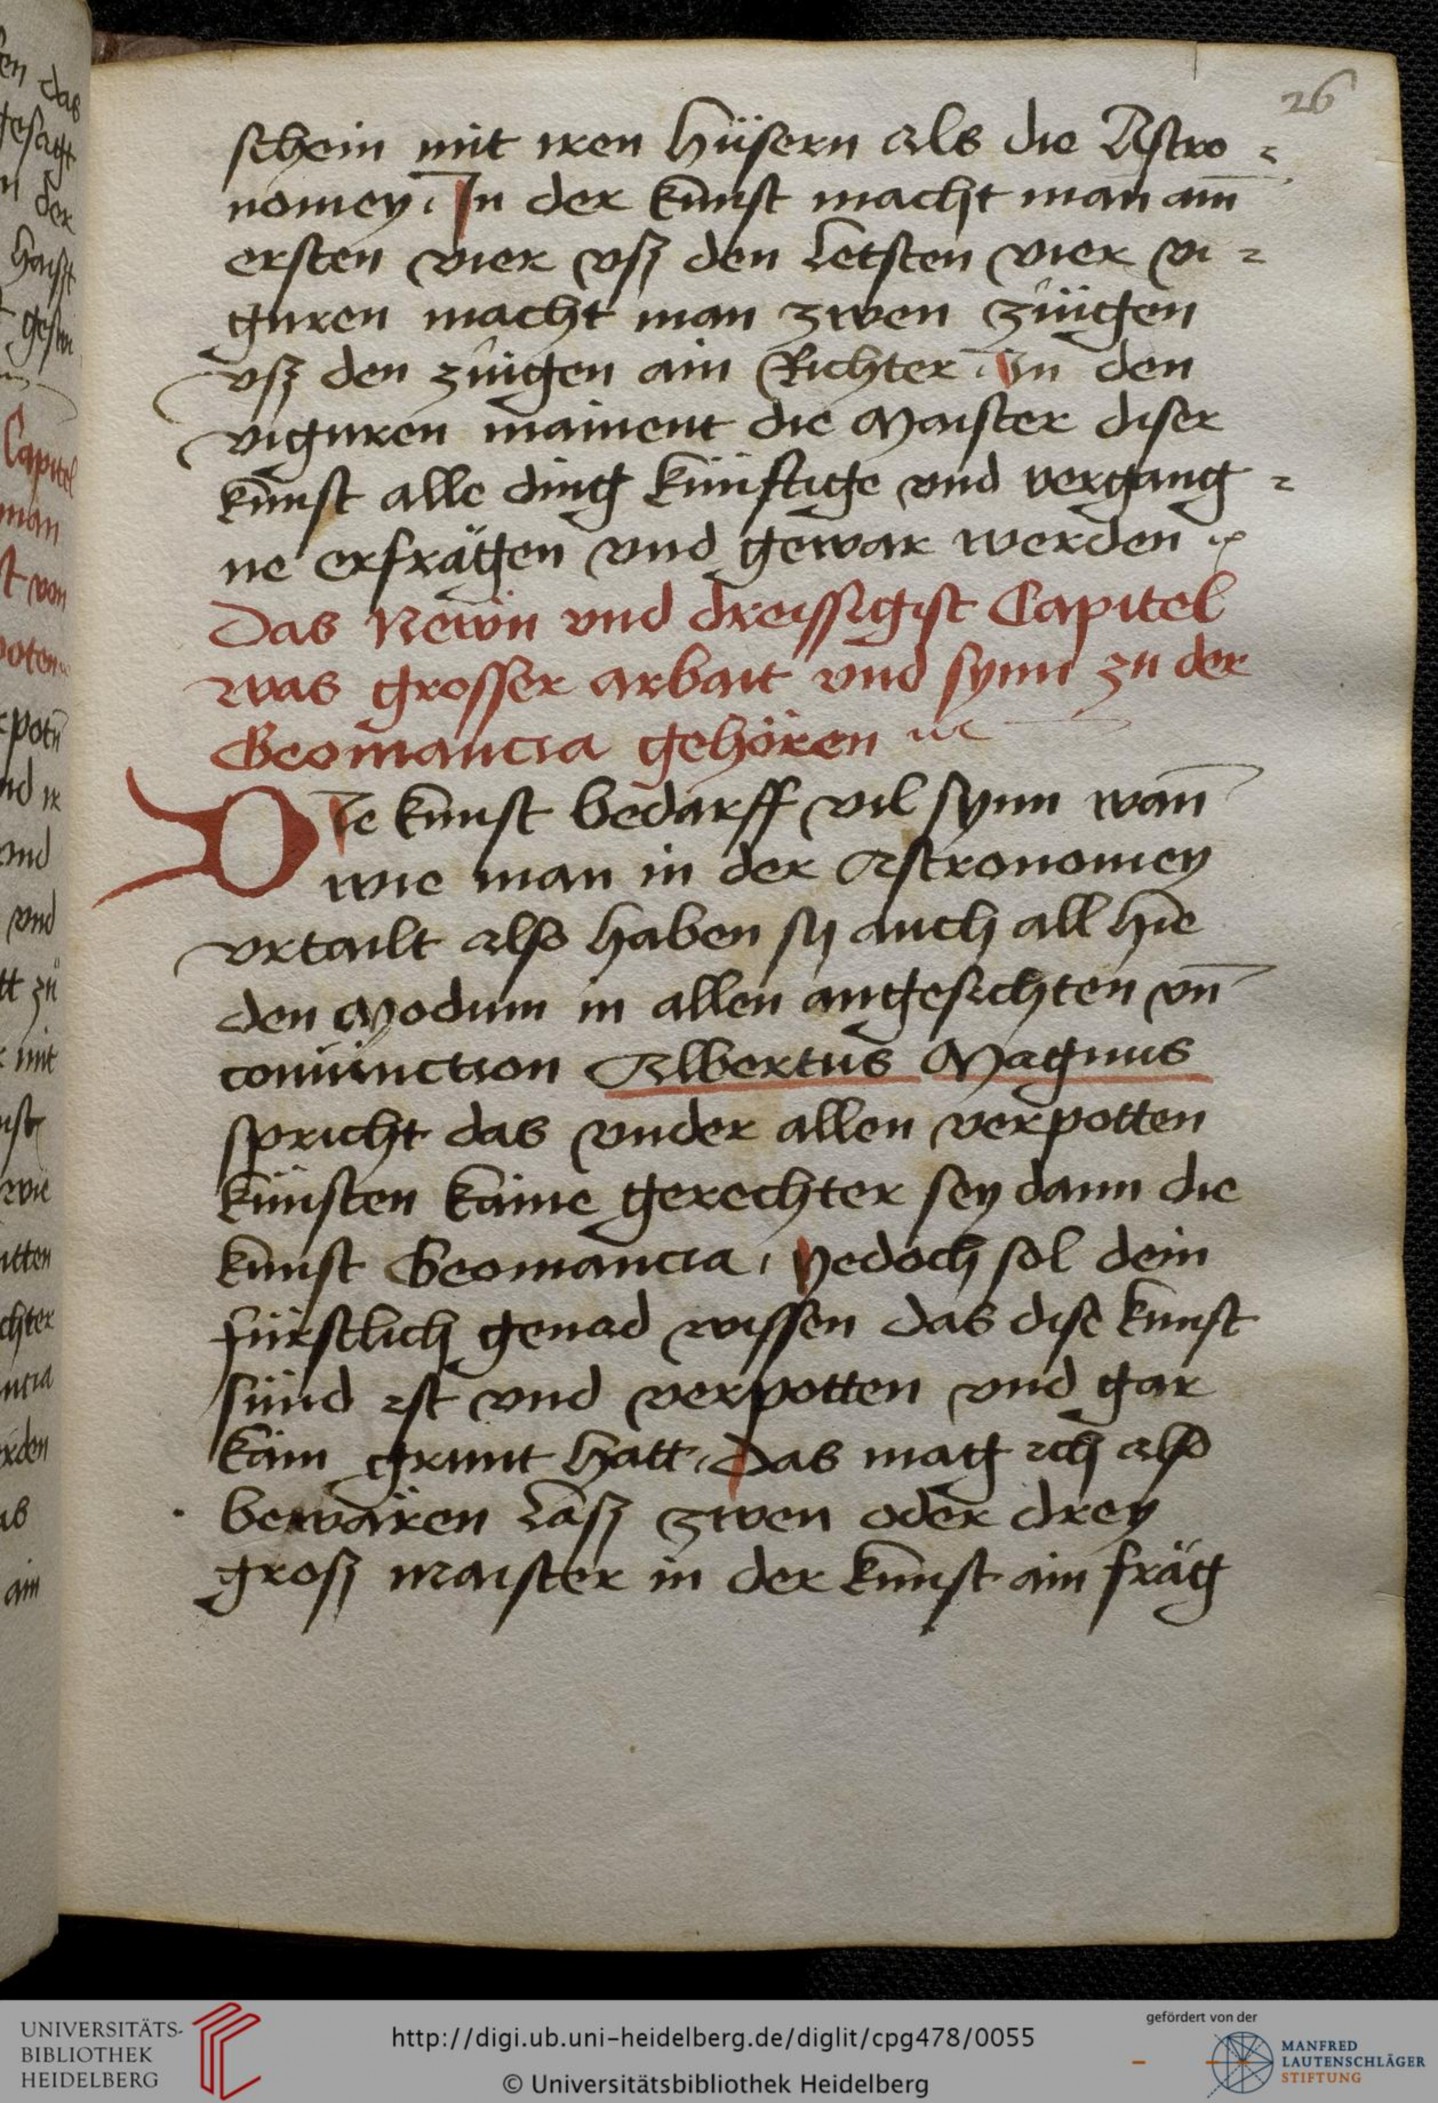 26
schein mit iren hüsern als die Astro=
nomey. In der kunst macht man am̄
ersten vier vsz den letsten vier vi=
guren macht man zwen züigen
vsz den züigen ain Richter. In den
viguren mainent die Maister diser
kunst alle ding künftige vnd vergang=
ne erfrägen vnd gewar werden
Das Newn vnd dreissigist Capitel
was grosser arbait vnd synn zu der
Geomancia gehören
DIe kunst bedarff vil synn wan̄
wie man in der Astronomey
vrtailt also haben sy auch all hie
den Modum in allen angesichten vn̄
coniunction Albertus Magnus
spricht das vnder allen verpotten
künsten kaine gerechter sey dann die
kunst Geomancia, yedoch sol dein
fürstlich genad wissen das dise kunst
sünd ist vnd verpotten vnd gar
kain grunt hatt, das mag ich also
bewären läsz zwen oder drey
grosz maister in der kunst ain fräg
UNIVERSITÄTS-
BIBLIOTHEK
HEIDELBERG
http://digi.ub.uni-heidelberg.de/diglit/cpg478/0055
© Universitätsbibliothek Heidelberg
gefördert von der
MANFRED
LAUTENSCHLÄGER
STIFTUNG